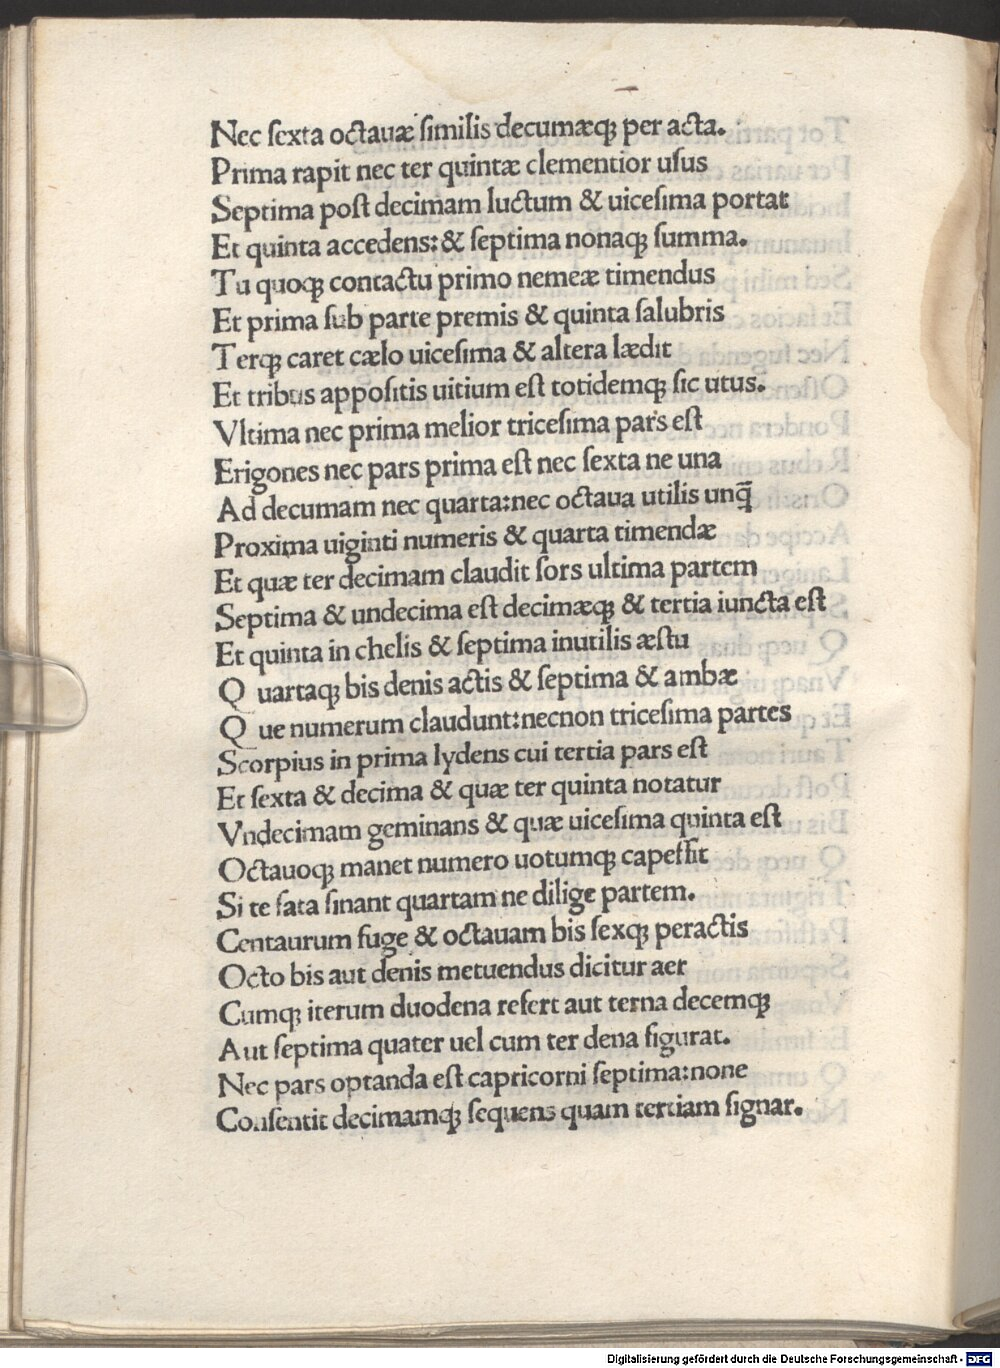 Nec ſexta octauæ ſimilis decumæqꝫ per acta.
Prima rapit nec ter quintæ clementior uſus
Septima poſt decimam luctum & uiceſima portat
Et quinta accedens:& ſeptima nonaqꝫ ſumma.
Tu quoqꝫ contactu primo nemeæ timendus
Et prima ſub parte premis & quinta ſalubris
Terqꝫ caret cælo uiceſima & altera lædit
Et tribus appoſitis uitium eſt totidemqꝫ ſic utus.
Vltima nec prima melior triceſima pars eſt
Erigones nec pars prima eſt nec ſexta ne una
Ad decumam nec quarta:nec octaua utilis unq̄
Proxima uiginti numeris & quarta timendæ
Et quæ ter decimam claudit ſors ultima partem
Septima & undecima eſt decimæqꝫ & tertia iuncta eſt
Et quinta in chelis & ſeptima inutilis æſtu
Q uartaqꝫ bis denis actis & ſeptima & ambæ
Q ue numerum claudunt:necnon triceſima partes
Scorpius in prima lydens cui tertia pars eſt
Et ſexta & decima & quæ ter quinta notatur
Vndecimam geminans & quæ uiceſima quinta eſt
Octauoqꝫ manet numero uotumqꝫ capeſſit
Si te fata ſinant quartam ne dilige partem.
Centaurum fuge & octauam bis ſexqꝫ peractis
Octo bis aut denis metuendus dicitur aer
Cumqꝫ iterum duodena refert aut terna decemqꝫ
Aut ſeptima quater uel cum ter dena figurat.
Nec pars optanda eſt capricorni ſeptima:none
Conſentit decimamqꝫ ſequens quam tertiam ſignar.
Digitalisierung gefördert durch die Deutsche Forschungsgemeinschaft - DFG